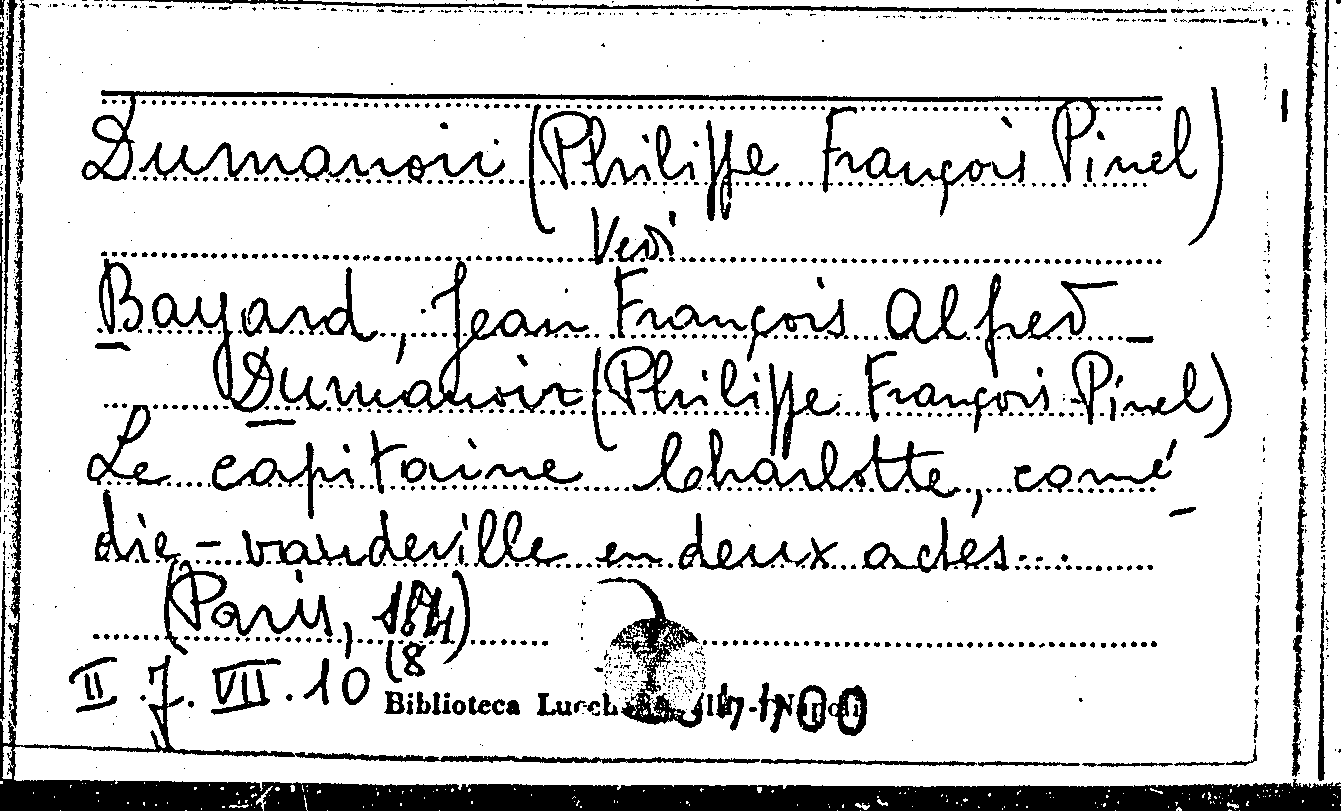 Dumanoir (Philippe François Pinel)
Vedi
Bayard, Jean François Alfred -
Dumanoir (Philippe François Pinel)
Le capitaine Charlotte, comé
die - vaudeville en deux actes...
(Paris,
(8
II. J. VII. 10
Biblioteca